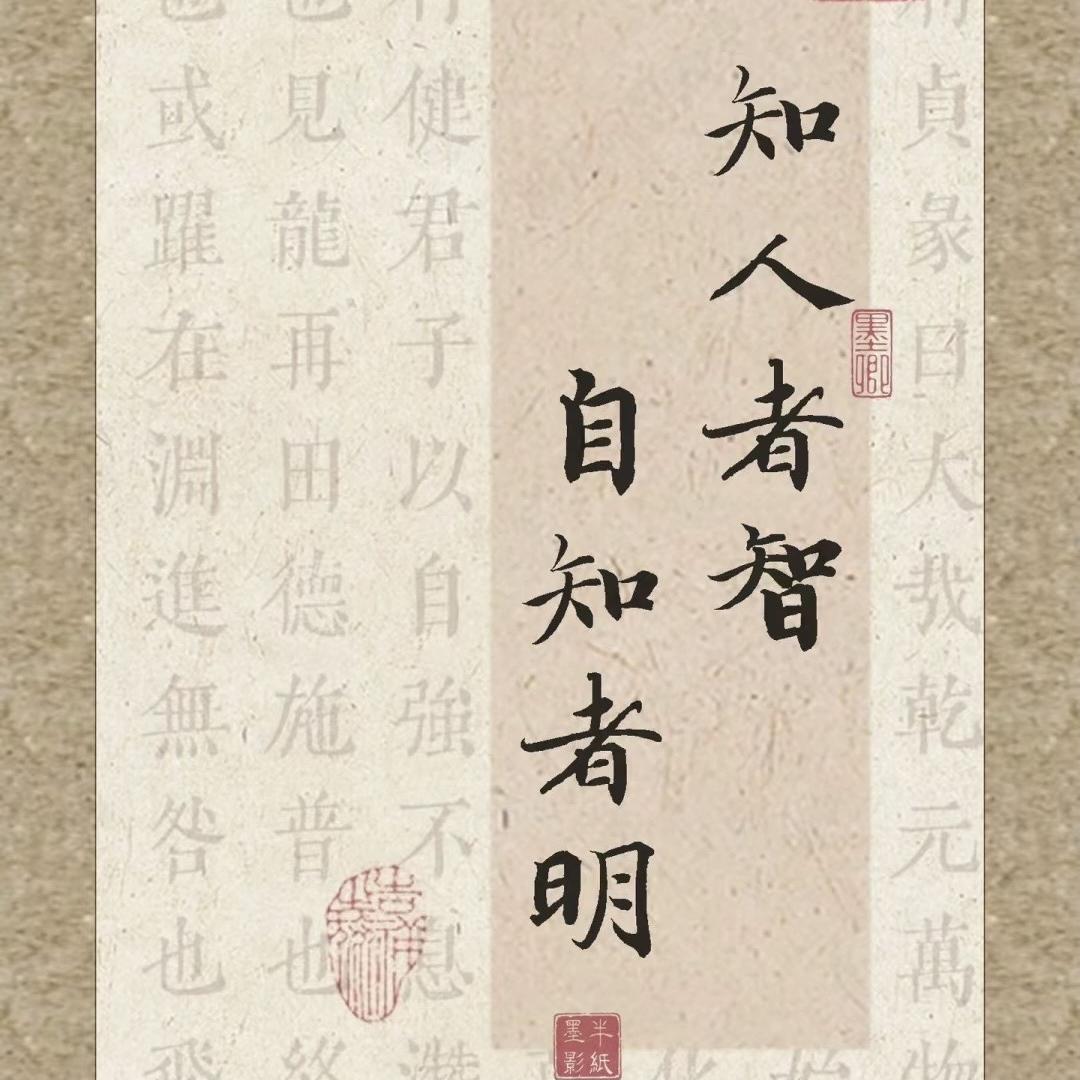 貞彖曰大哉乾元萬物
知人者智
墨卿
自知者明
半紙墨影
行健君子以自強不息潛
也見龍再田德施普也
也或躍在淵進無咎也飛